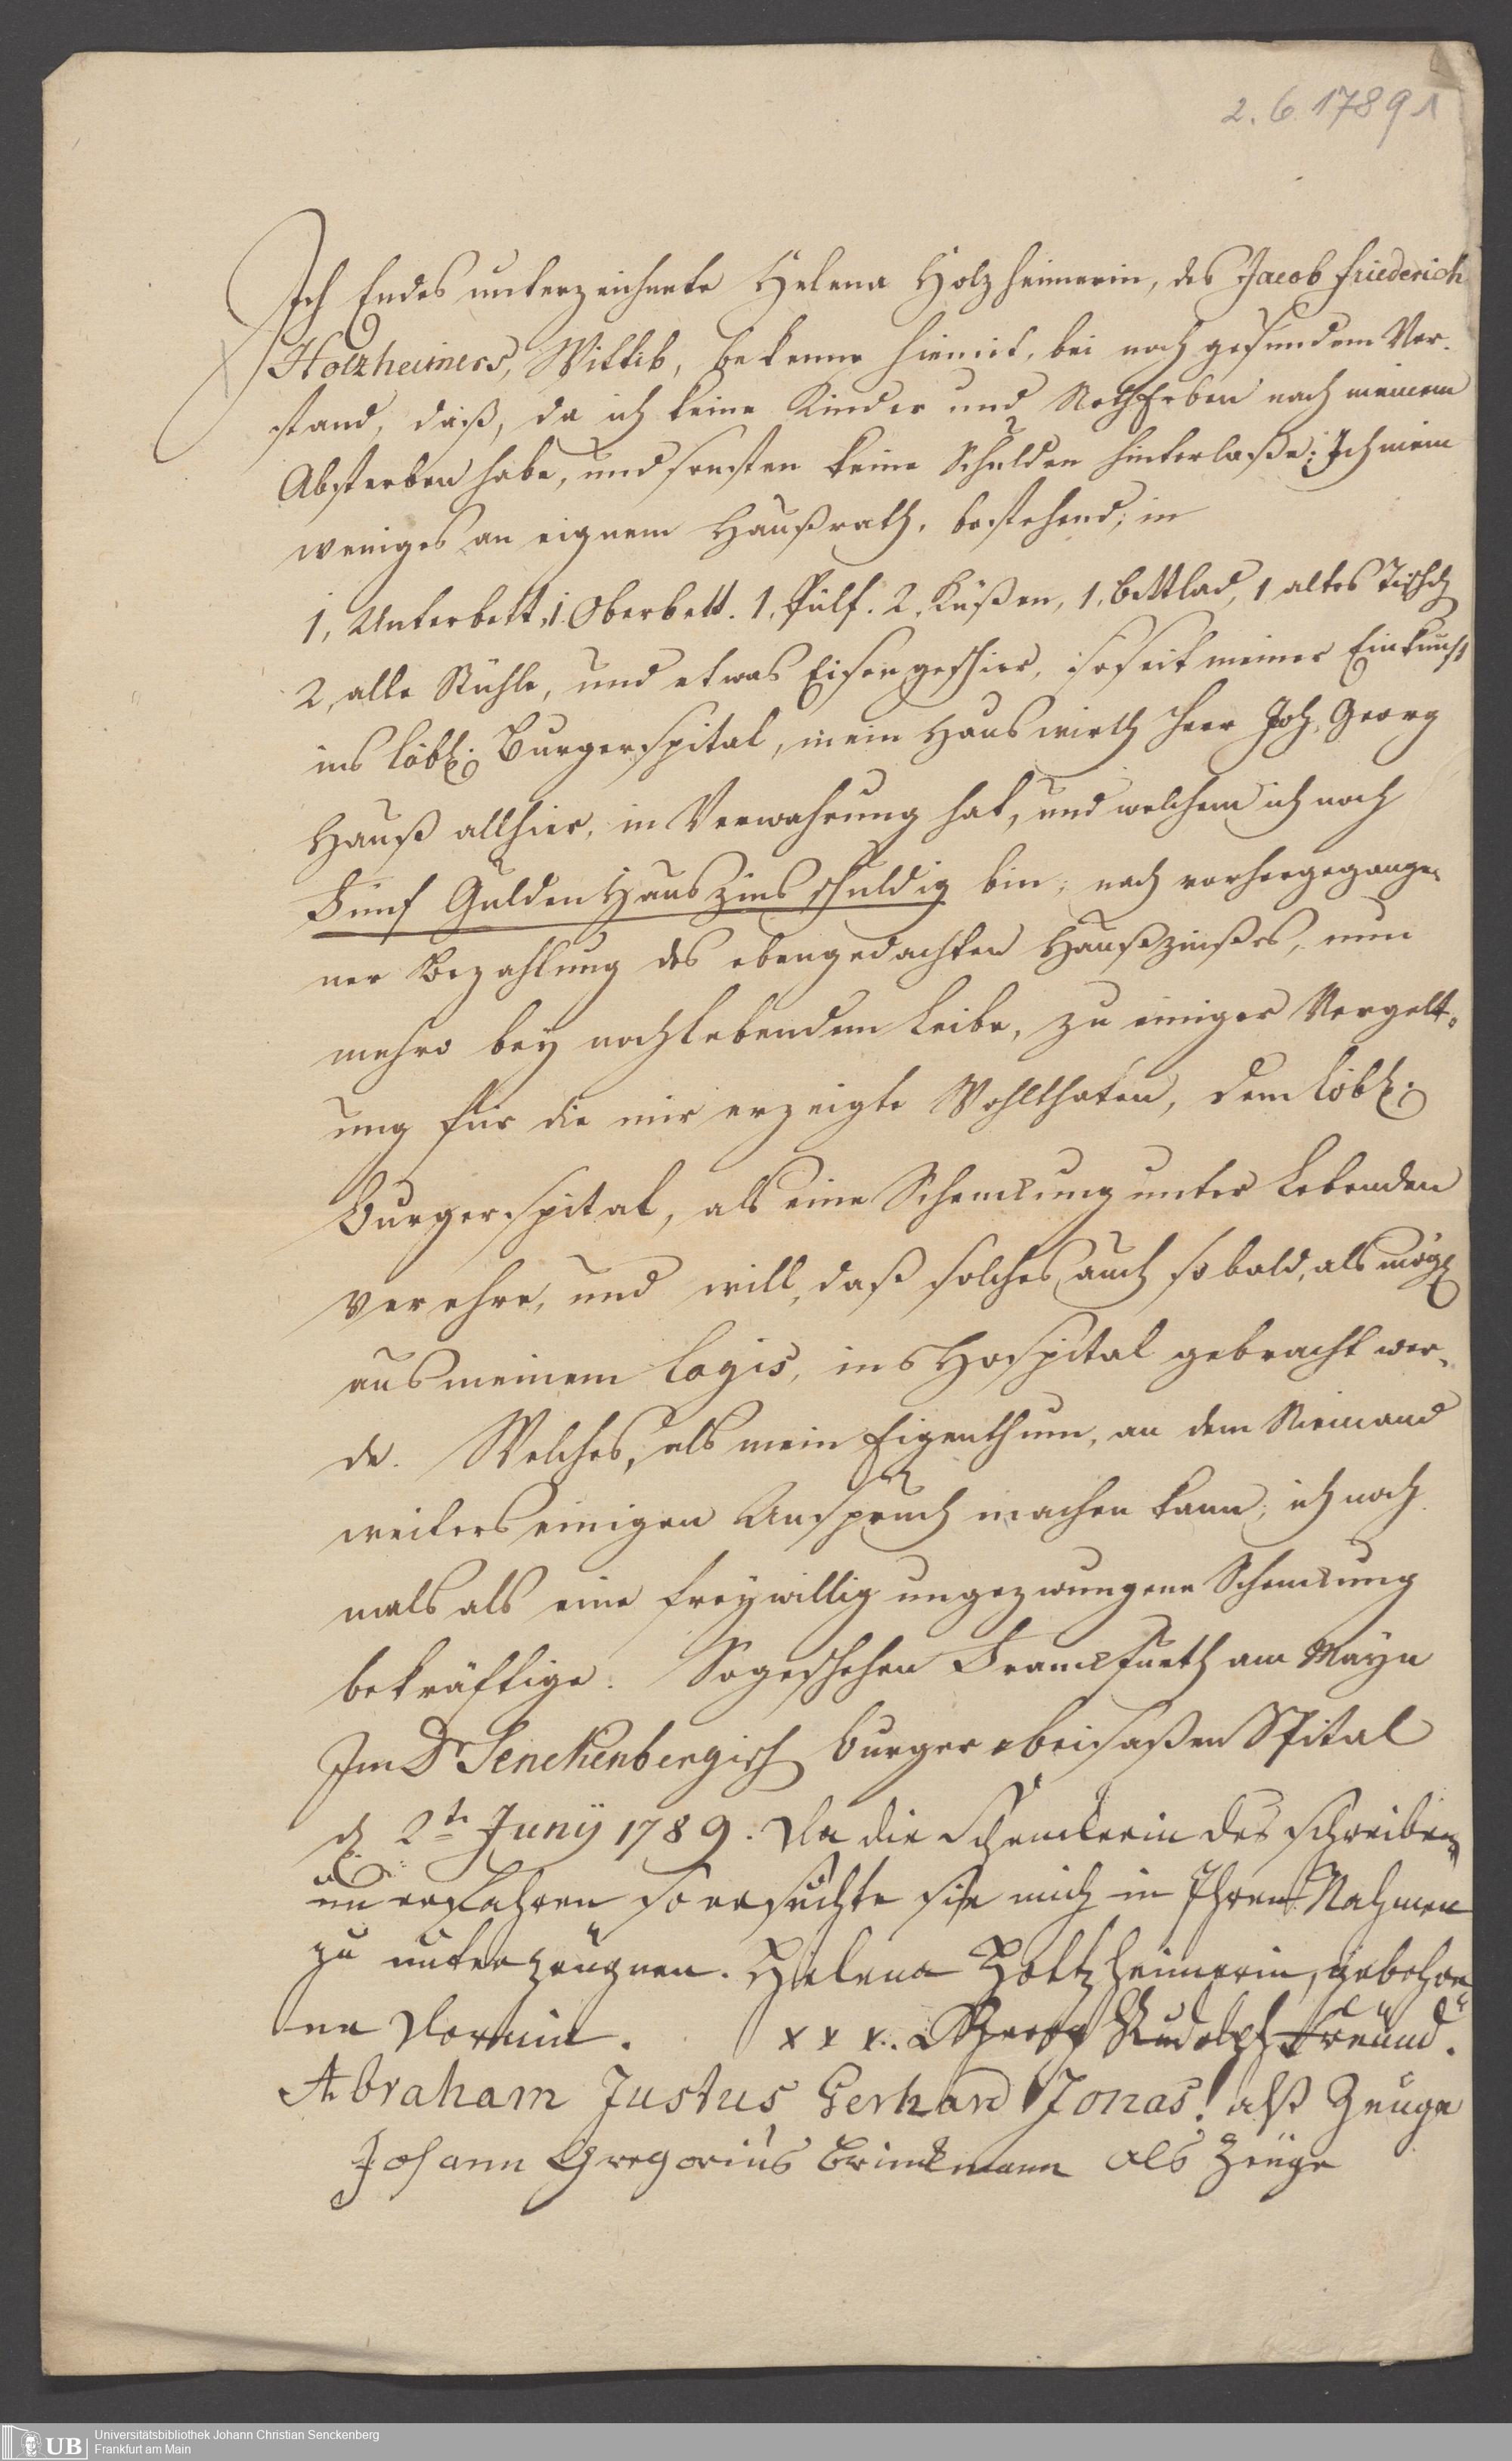 2. 6. 1789 1
Ich Endes unterzeichnete Helena Holzheimerin, des Jacob Friederich
Holzheimers, Wittib, bekenne hiemit, bei noch gesundem Ver-
stand, daß, da ich keine Kinder und NothErben nach meinem
Absterben habe, und sonsten keine Schulden hinterlaße; Ich mein
weniges an eignem Haußrath, bestehend, in
1, Unterbett, 1 Oberbett. 1, Pülf. 2, Küßen, 1, Bettlad, 1 altes Tischg
2, alte Stühle, und etwas Eisengeschirr, so seit meiner Einkunft
ins löbl: Burgerspital, mein Hauswirth Herr Joh, Georg
Hauß allhier, in Verwahrung hat, und welchem ich noch
Fünf Gulden Hauszins schuldig bin; nach vorhergegange-
ner Bezahlung des ebengedachten Haußzinßes, nun
mehro bey nochlebendem Leibe, zu einiger Vergelt-
ung für die mir erzeigte Wohlthaten, dem löbl:
Burgerspital, als eine Schenckung unter Lebenden
verehre, und will, daß solches auch so bald, als mögl
aus meinem Logis, ins Hospital gebracht wer-
de. Welches, als mein Eigenthum, an dem Niemand
weiters einigen Anspruch machen kann, ich noch
mals als eine freywillig ungezwungene Schenckung
bekräftige. So geschehen Franckfurth am Mayn
Im Dr Senckenbergisch Burger u beisaßen Spital
d. 2tn Juny 1789. Da die Schenckerin des schreibens
un erfahren so ersuchte sie mich in Ihrem Nahmen
zu unterzeugnen. Helena Holtzheimerin, gebohre
ne Dornin. x x x. Georg Rudolph Freund.
Abraham Justus Gerhard Jonas! alß Zeuge
Johann Gregorius Brinckmann als Zeuge
UB
Universitätsbibliothek Johann Christian Senckenberg
Frankfurt am Main